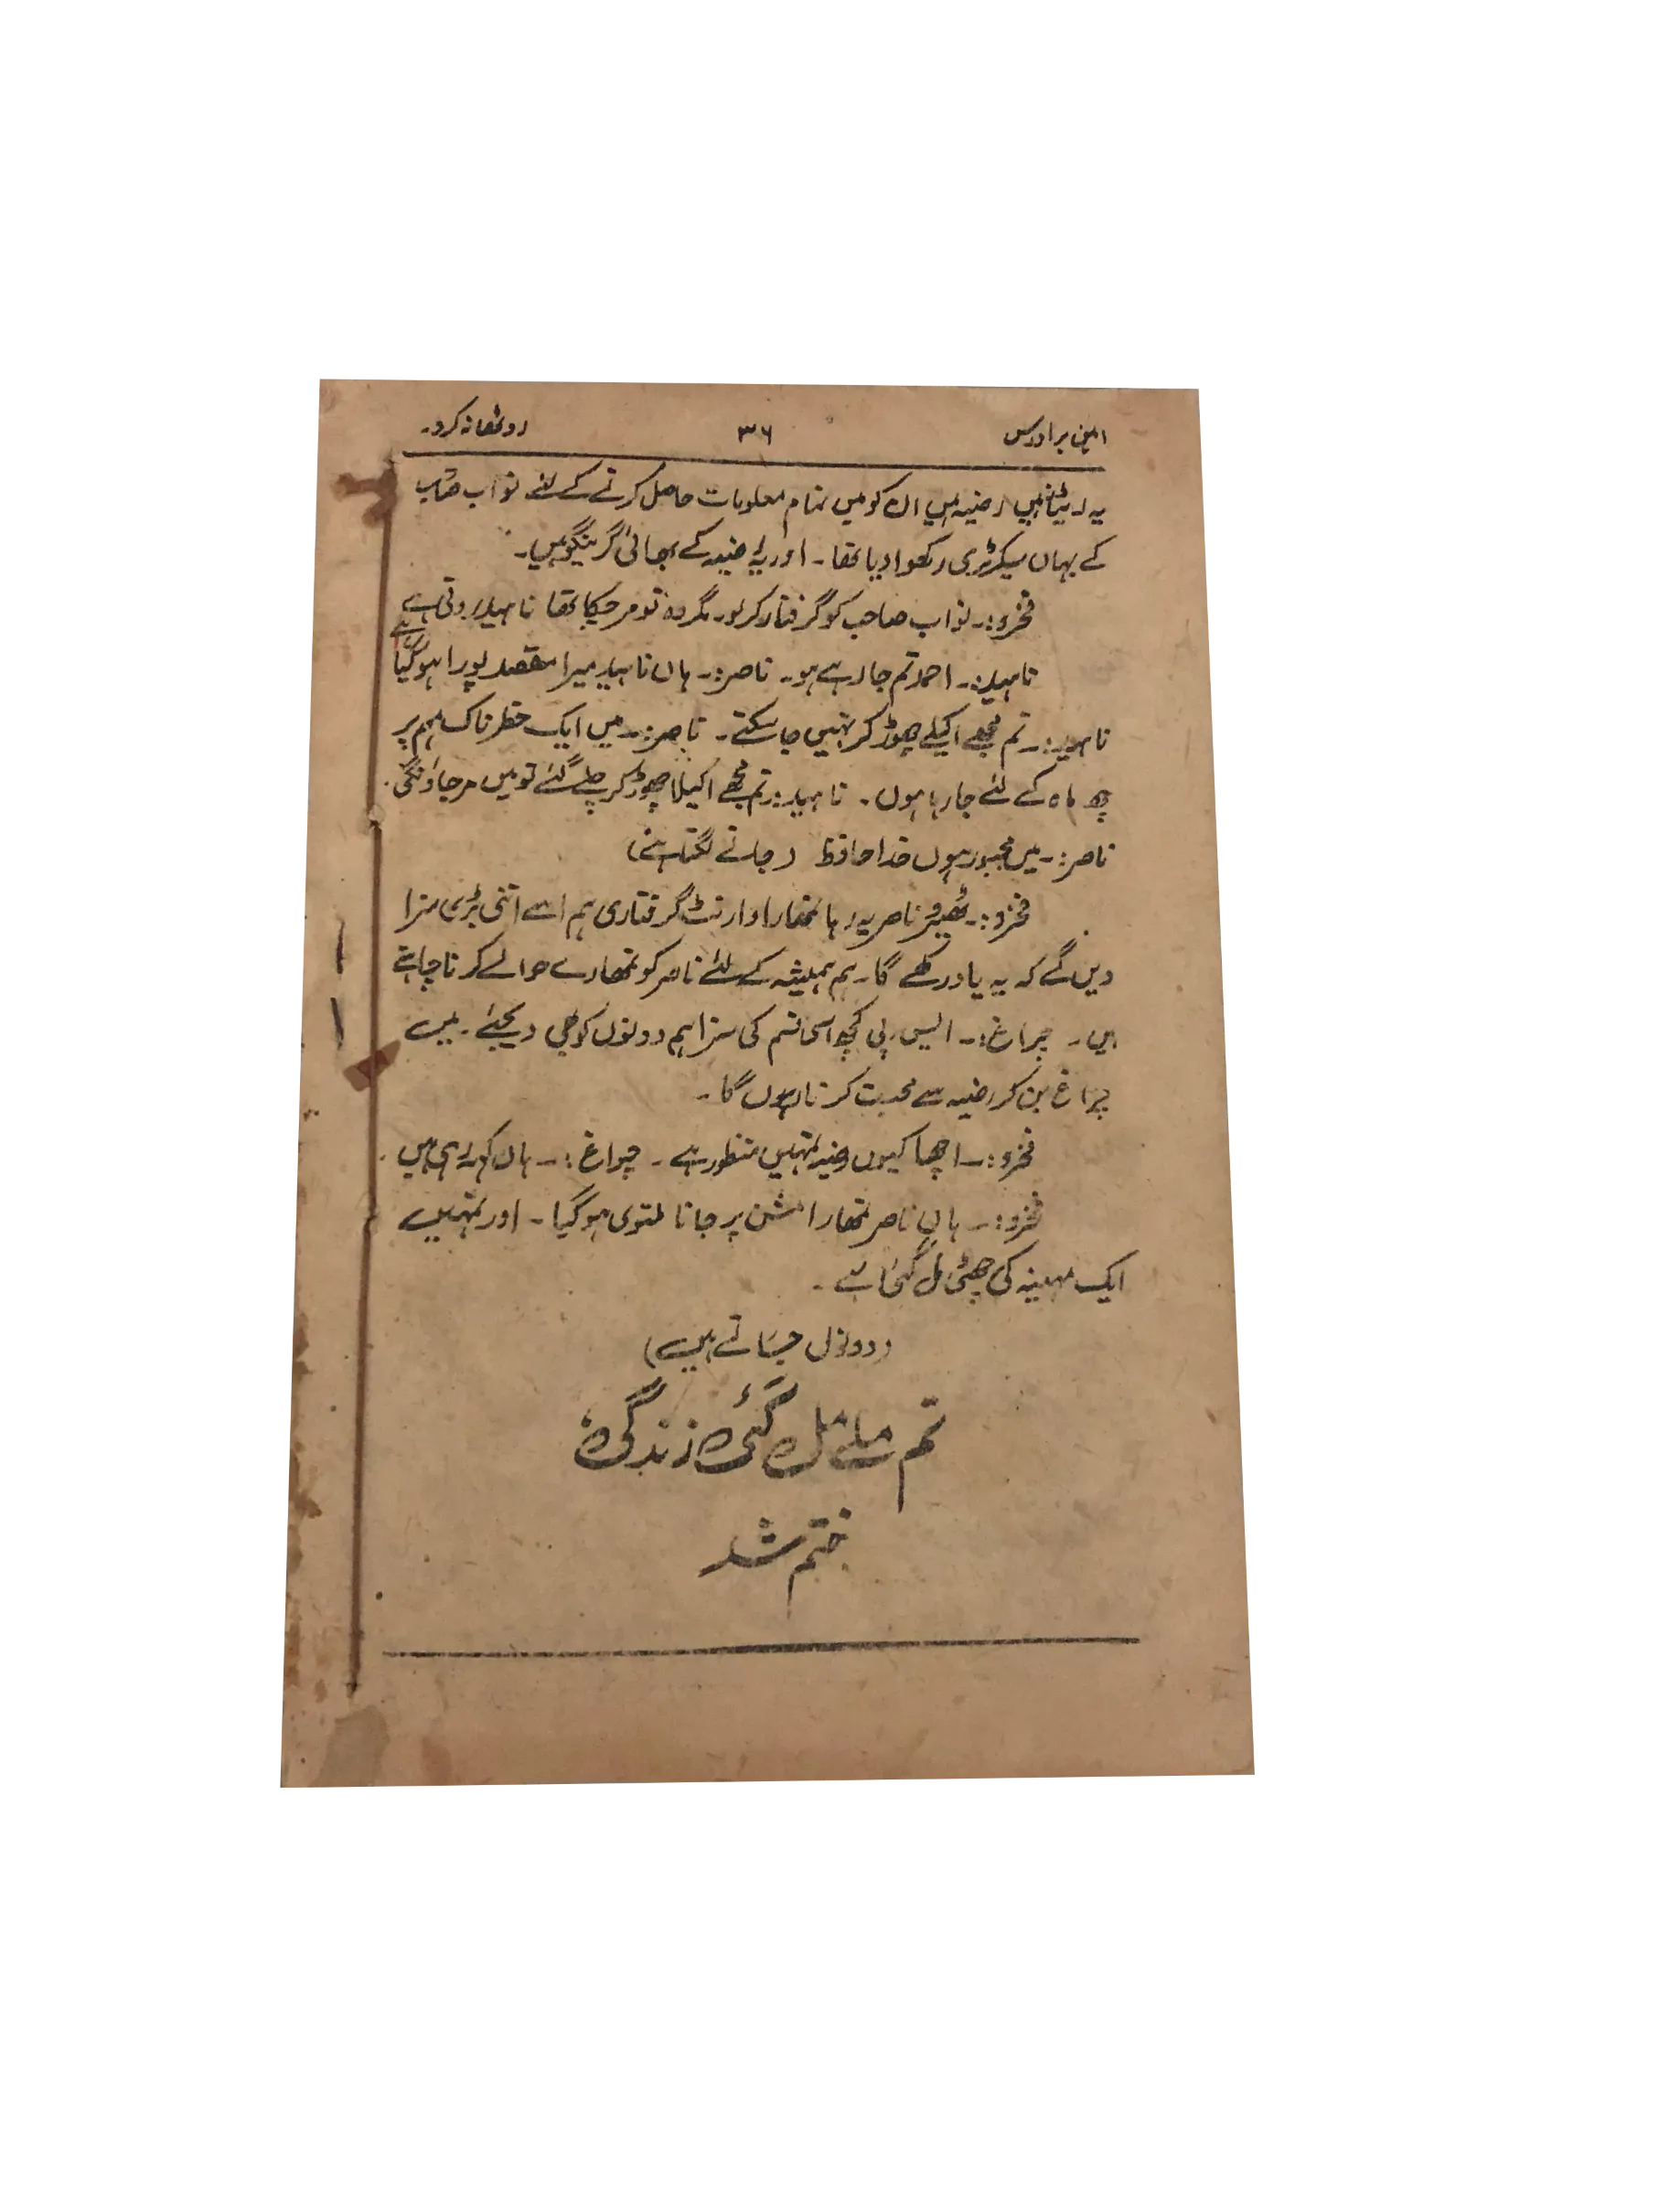 امین برادرس ۳۶ روٹھا نہ کرو۔
یہ ریٹا نہیں رضیہ ہیں ان کو میں تمام معلومات حاصل کرنے کے لئے نواب صاحب
کے یہاں سیکرٹری رکھوا دیا تھا۔ اور یہ رضیہ کے بھائی گرینگو ہیں۔
فخرو:۔ نواب صاحب کو گرفتار کر لو۔ مگر وہ تو مر چکا تھا ناہید روتی ہے
ناہید:۔ احمد تم جا رہے ہو۔ ناصر:۔ ہاں ناہید میرا مقصد پورا ہو گیا ہے
ناہید:۔ تم مجھے اکیلے چھوڑ کر نہیں جا سکتے۔ ناصر:۔ میں ایک خطرناک مہم پر
چھ ماہ کے لئے جا رہا ہوں۔ ناہید:۔ تم مجھے اکیلا چھوڑ کر چلے گئے تو میں مر جاؤنگی۔
ناصر:۔ میں مجبور ہوں خدا حافظ (جانے لگتا ہے)
فخرو:۔ ٹھیرو ناصر یہ رہا تمھارا وارنٹ گرفتاری ہم اسے اتنی بڑی سزا
دیں گے کہ یہ یاد رکھے گا۔ ہم ہمیشہ کے لئے ناصر کو تمھارے حوالے کرنا چاہتے
ہیں۔ چراغ:۔ ایس پی کچھ اسی قسم کی سزا ہم دونوں کو بھی دیجئے۔ میں
چراغ بن کر رضیہ سے محبت کرتا رہوں گا۔
فخرو:۔ اچھا کیوں رضیہ تمہیں منظور ہے۔ چراغ:۔ ہاں کہہ رہی ہیں۔
فخرو:۔ ہاں ناصر تمھارا مشن پر جانا ملتوی ہو گیا۔ اور تمہیں
ایک مہینہ کی چھٹی مل گئی ہے۔
(دونوں جاتے ہیں)
تم ملے مل گئی زندگی
ختم شد